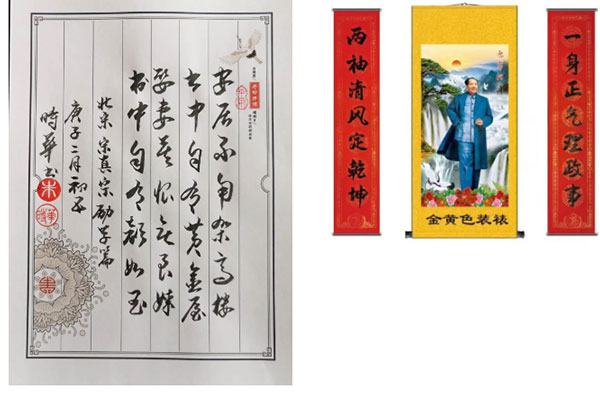 安居不用架高楼
书中自有黄金屋
娶妻莫恨无良媒
书中自有颜如玉
北宋 宋真宗 励学篇
庚子二月初
时华书
一身正气理政事
两袖清风定乾坤
金黄色装裱